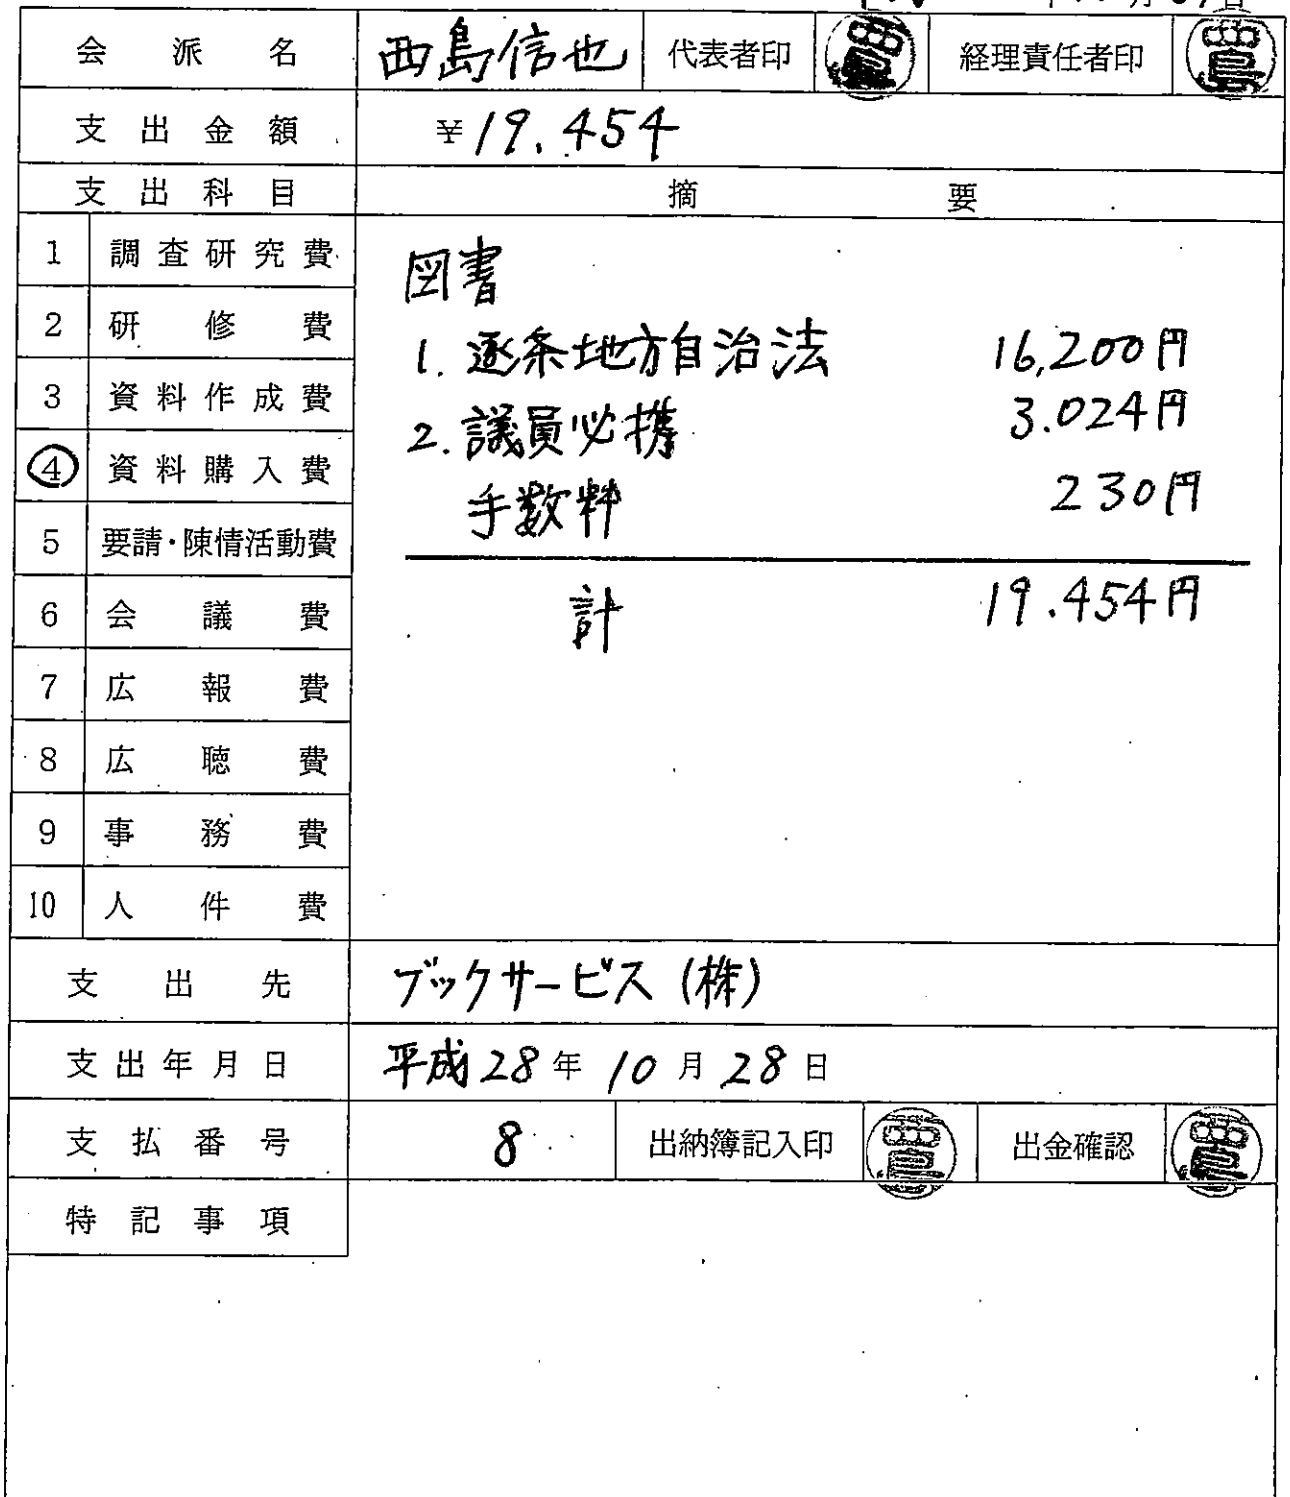 会派名 西島信也 代表者印 経理責任者印
支出金額 ¥19.454
支出科目 摘要
1 調査研究費
2 研修費
3 資料作成費
4 資料購入費
5 要請・陳情活動費
6 会議費
7 広報費
8 広聴費
9 事務費
10 人件費
図書
1. 逐条地方自治法 16,200円
2. 議員必携 3.024円
手数料 230円
計 19.454円
支出先 ブックサービス(株)
支出年月日 平成28年10月28日
支払番号 8 出納簿記入印 出金確認
特記事項